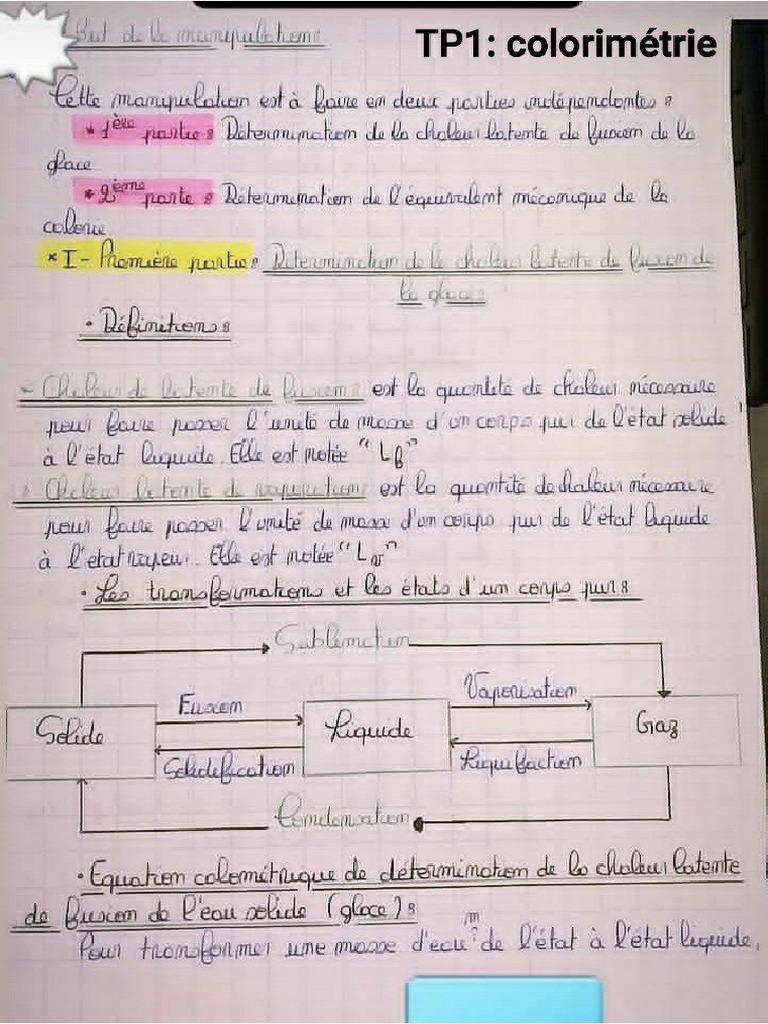 But de la manipulation:
TP1: colorimétrie
Cette manipulation est à faire en deux parties indépendantes:
* 1ère partie: Détermination de la chaleur latente de fusion de la
glace
* 2ème partie: Détermination de l'équivalent mécanique de la
calorie
* I- Première partie: Détermination de la chaleur latente de fusion de
la glace:
• Définitions:
- Chaleur de latente de fusion: est la quantité de chaleur nécessaire
pour faire passer l'unité de masse d'un corps pur de l'état solide
à l'état liquide. Elle est notée "Lf"
Chaleur latente de vaporisation: est la quantité de chaleur nécessaire
pour faire passer l'unité de masse d'un corps pur de l'état liquide
à l'etat vapeur. Elle est notée "Lv"
• Les transformations et les états d'un corps pur:
Sublimation
Fusion
Vaporisation
Solide
Liquide
Gaz
Solidification
Liquéfaction
Condensation
• Equation calorimétrique de détermination de la chaleur latente
de fusion de l'eau solide (glace):
Pour transformer une masse d'eau "m" de l'état à l'état liquide,